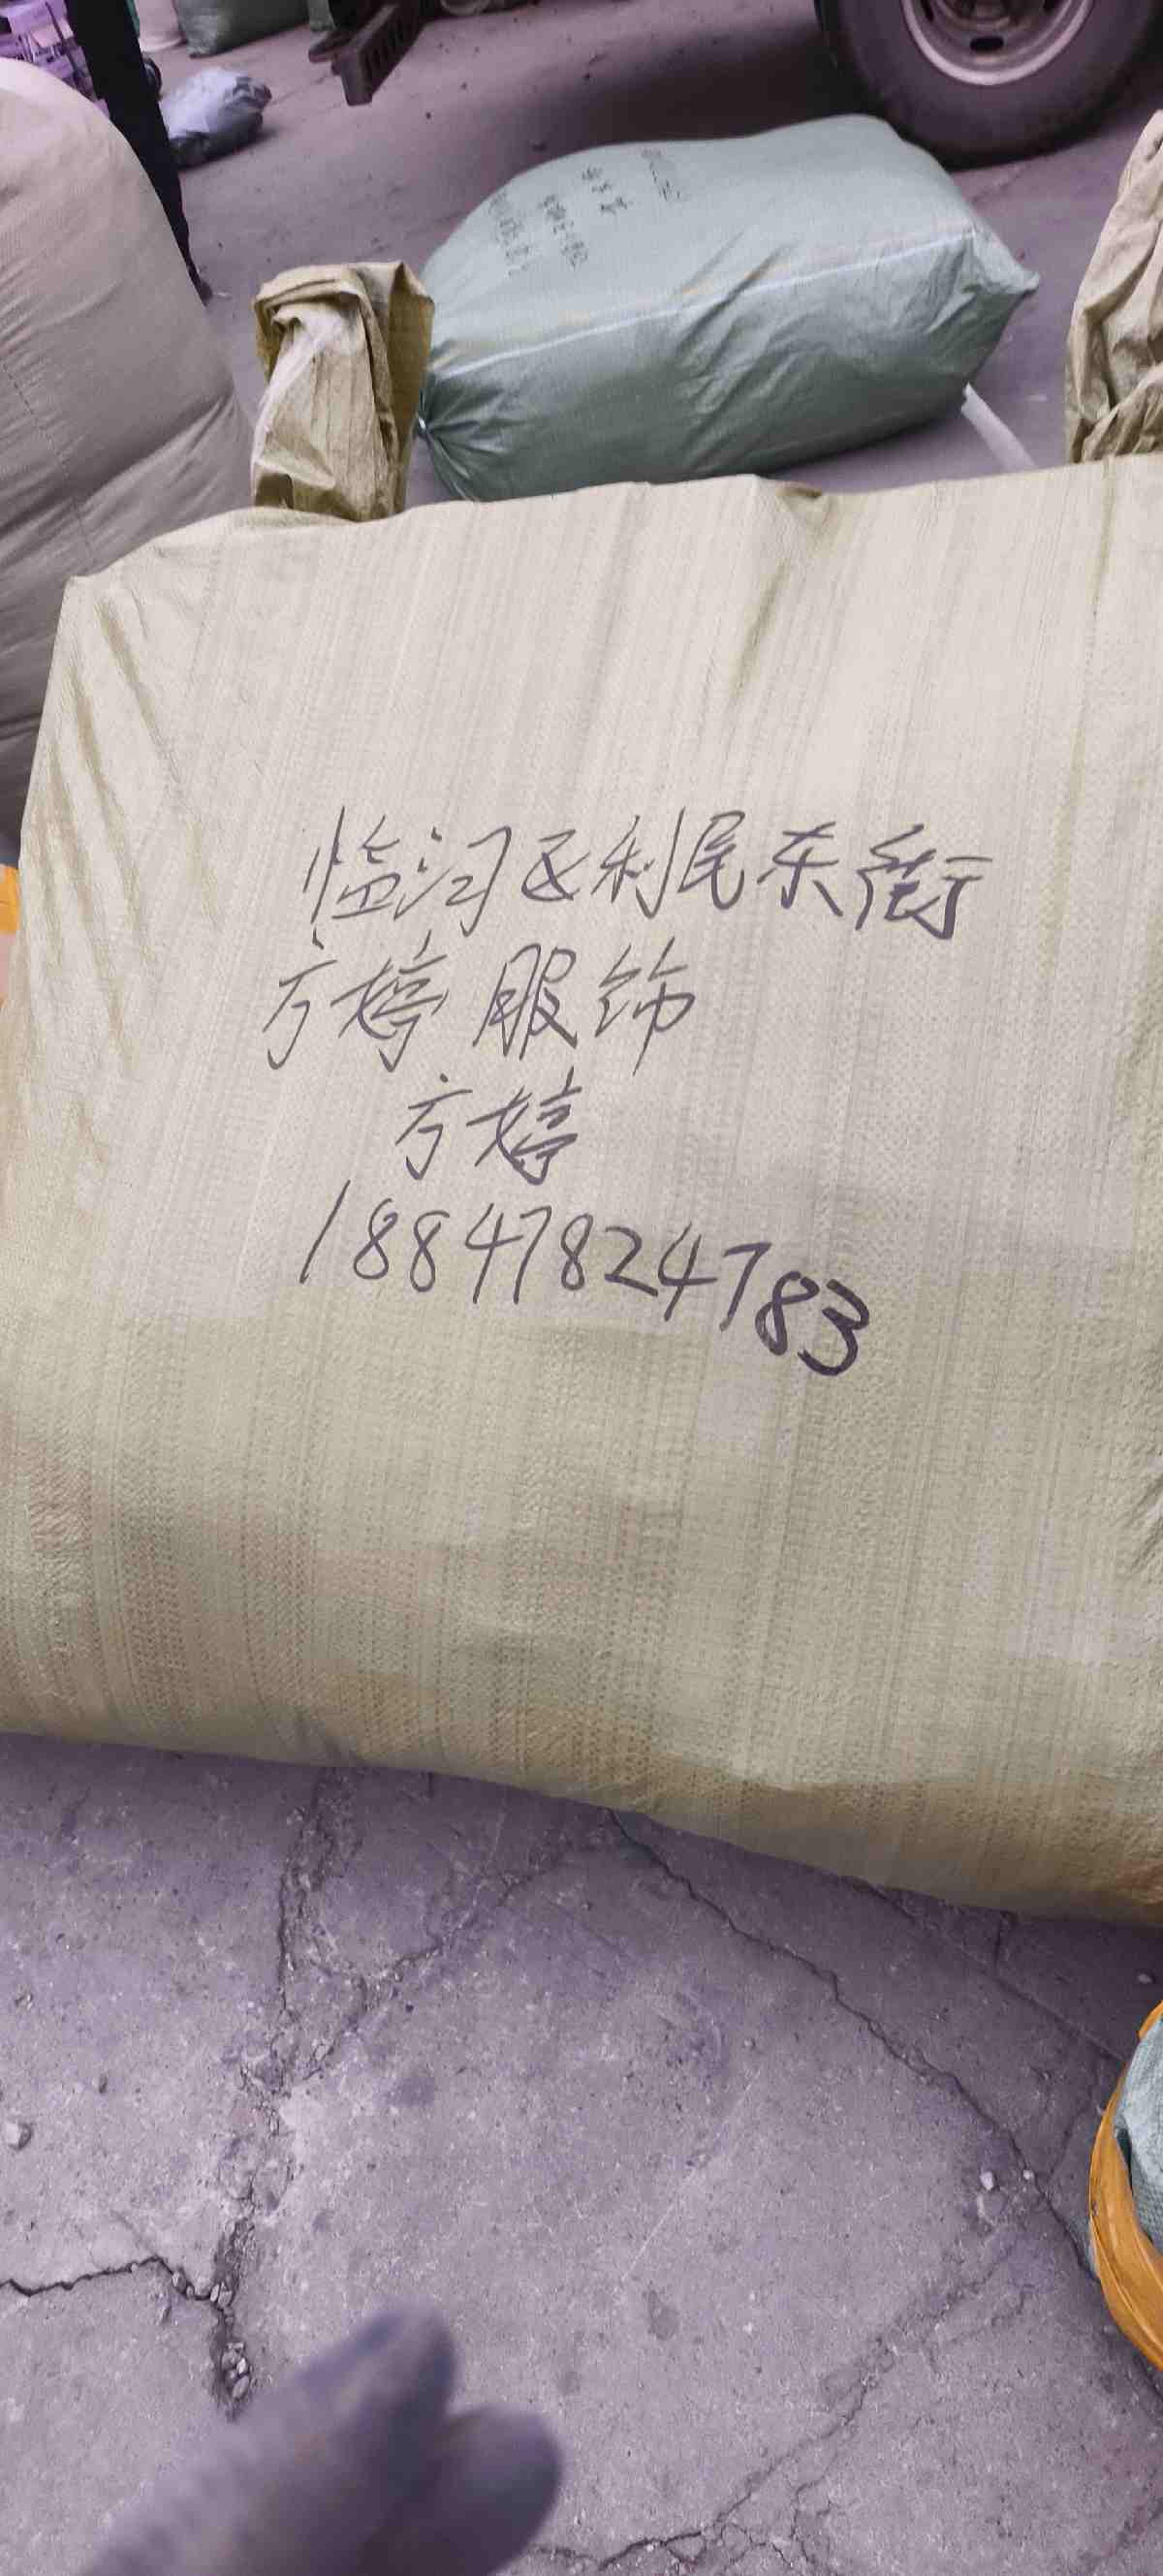 临河区利民东街
方婷服饰
方婷
18847824783